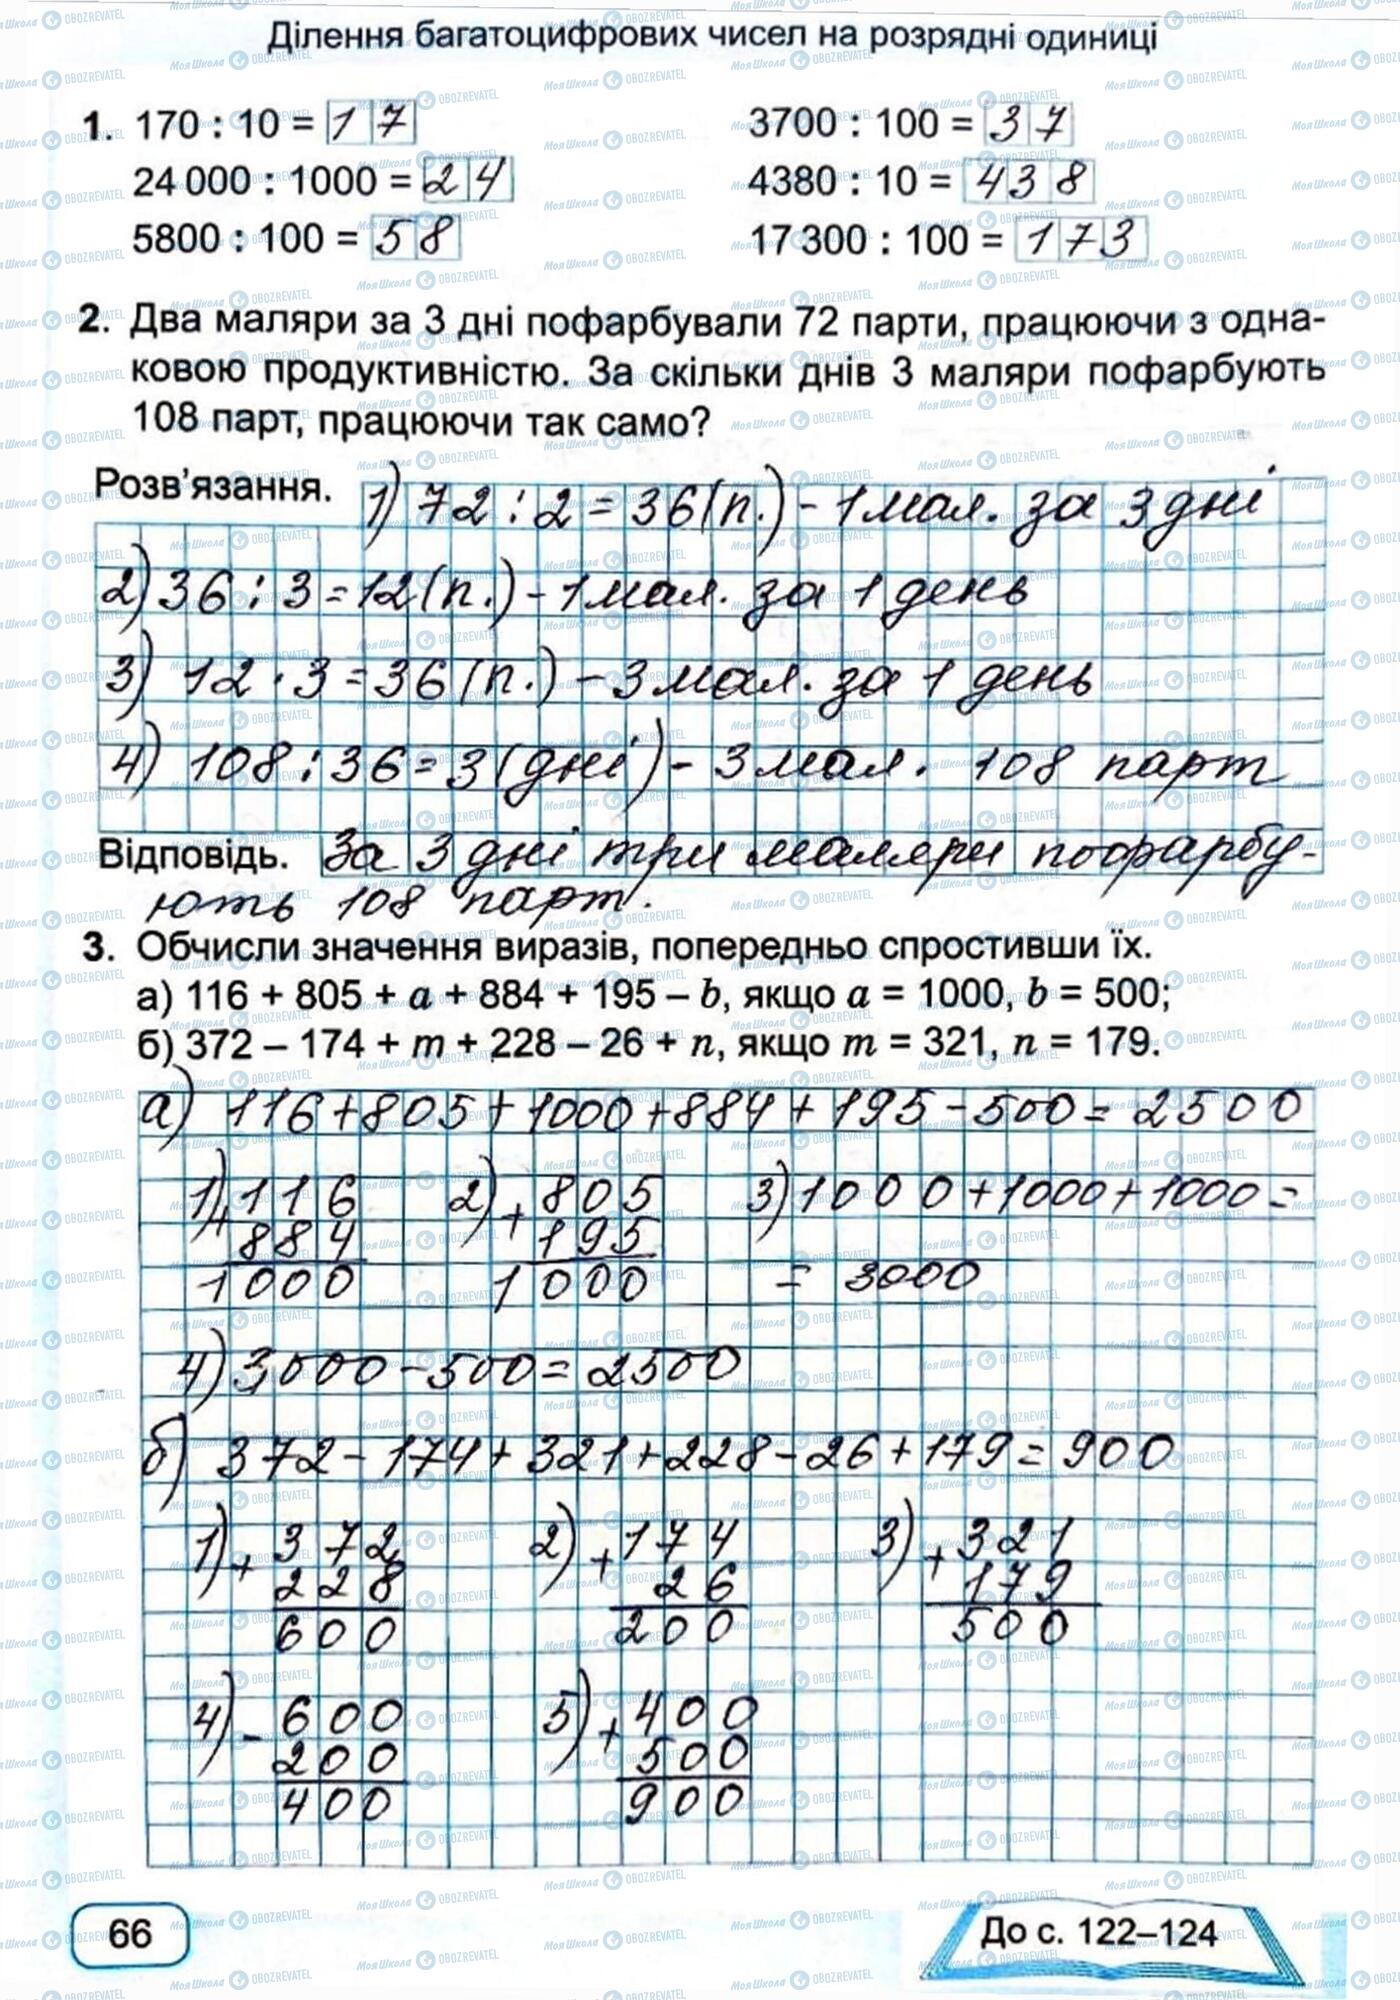 Ділення багатоцифрових чисел на розрядні одиниці
1. 170 : 10 = 17
3700 : 100 = 37
24 000 : 1000 = 24
4380 : 10 = 438
5800 : 100 = 58
17 300 : 100 = 173
2. Два маляри за 3 дні пофарбували 72 парти, працюючи з одна-
ковою продуктивністю. За скільки днів 3 маляри пофарбують
108 парт, працюючи так само?
Розв'язання. 1) 72 : 2 = 36 (п.) - 1 мал. за 3 дні
2) 36 : 3 = 12 (п.) - 1 мал. за 1 день
3) 12 · 3 = 36 (п.) - 3 мал. за 1 день
4) 108 : 36 = 3 (дні) - 3 мал. 108 парт
Відповідь. За 3 дні три маляри пофарбу-
ють 108 парт.
3. Обчисли значення виразів, попередньо спростивши їх.
а) 116 + 805 + a + 884 + 195 – b, якщо a = 1000, b = 500;
б) 372 – 174 + m + 228 – 26 + n, якщо m = 321, n = 179.
а) 116 + 805 + 1000 + 884 + 195 - 500 = 2500
1) 116 2) 805 3) 1000 + 1000 + 1000 =
+ 884 + 195
1000 1000 = 3000
4) 3000 - 500 = 2500
б) 372 - 174 + 321 + 228 - 26 + 179 = 900
1) + 372 2) + 174 3) + 321
228 26 179
600 200 500
4) - 600 5) + 400
200 500
400 900
66
До с. 122–124
МояШкола OBOZREVATEL